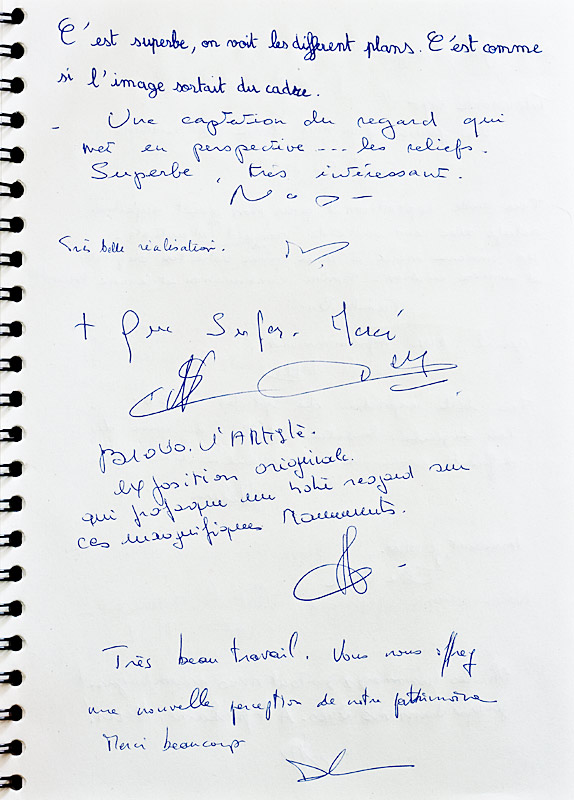 C'est superbe, on voit les different plans. C'est comme
si l'image sortait du cadre.
- Une captation du regard qui
met en perspective --- les reliefs.
Superbe, très intéressant.
Très belle réalisation.
+ que Super. Merci
Bravo. l'Artiste.
exposition originale.
qui provoque un autre regard sur
ces magnifiques Monuments.
Très beau travail. Vous nous offrez
une nouvelle perception de notre patrimoine
Merci beaucoup